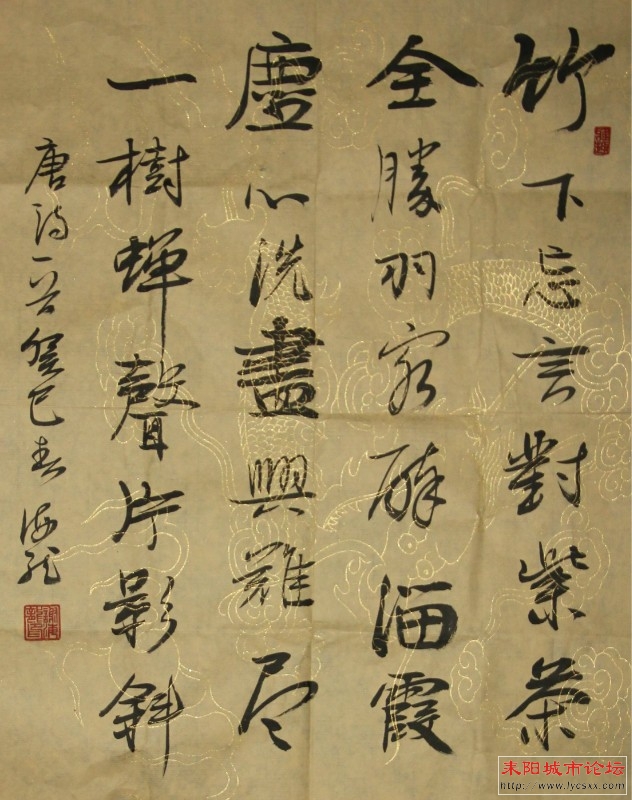 竹下忘言對紫茶
全勝羽客醉海霞
塵心洗盡興難尽
一樹蟬聲片影斜
唐詩一首癸巳春海龙
耒阳城市论坛
http://www.lycsxx.com